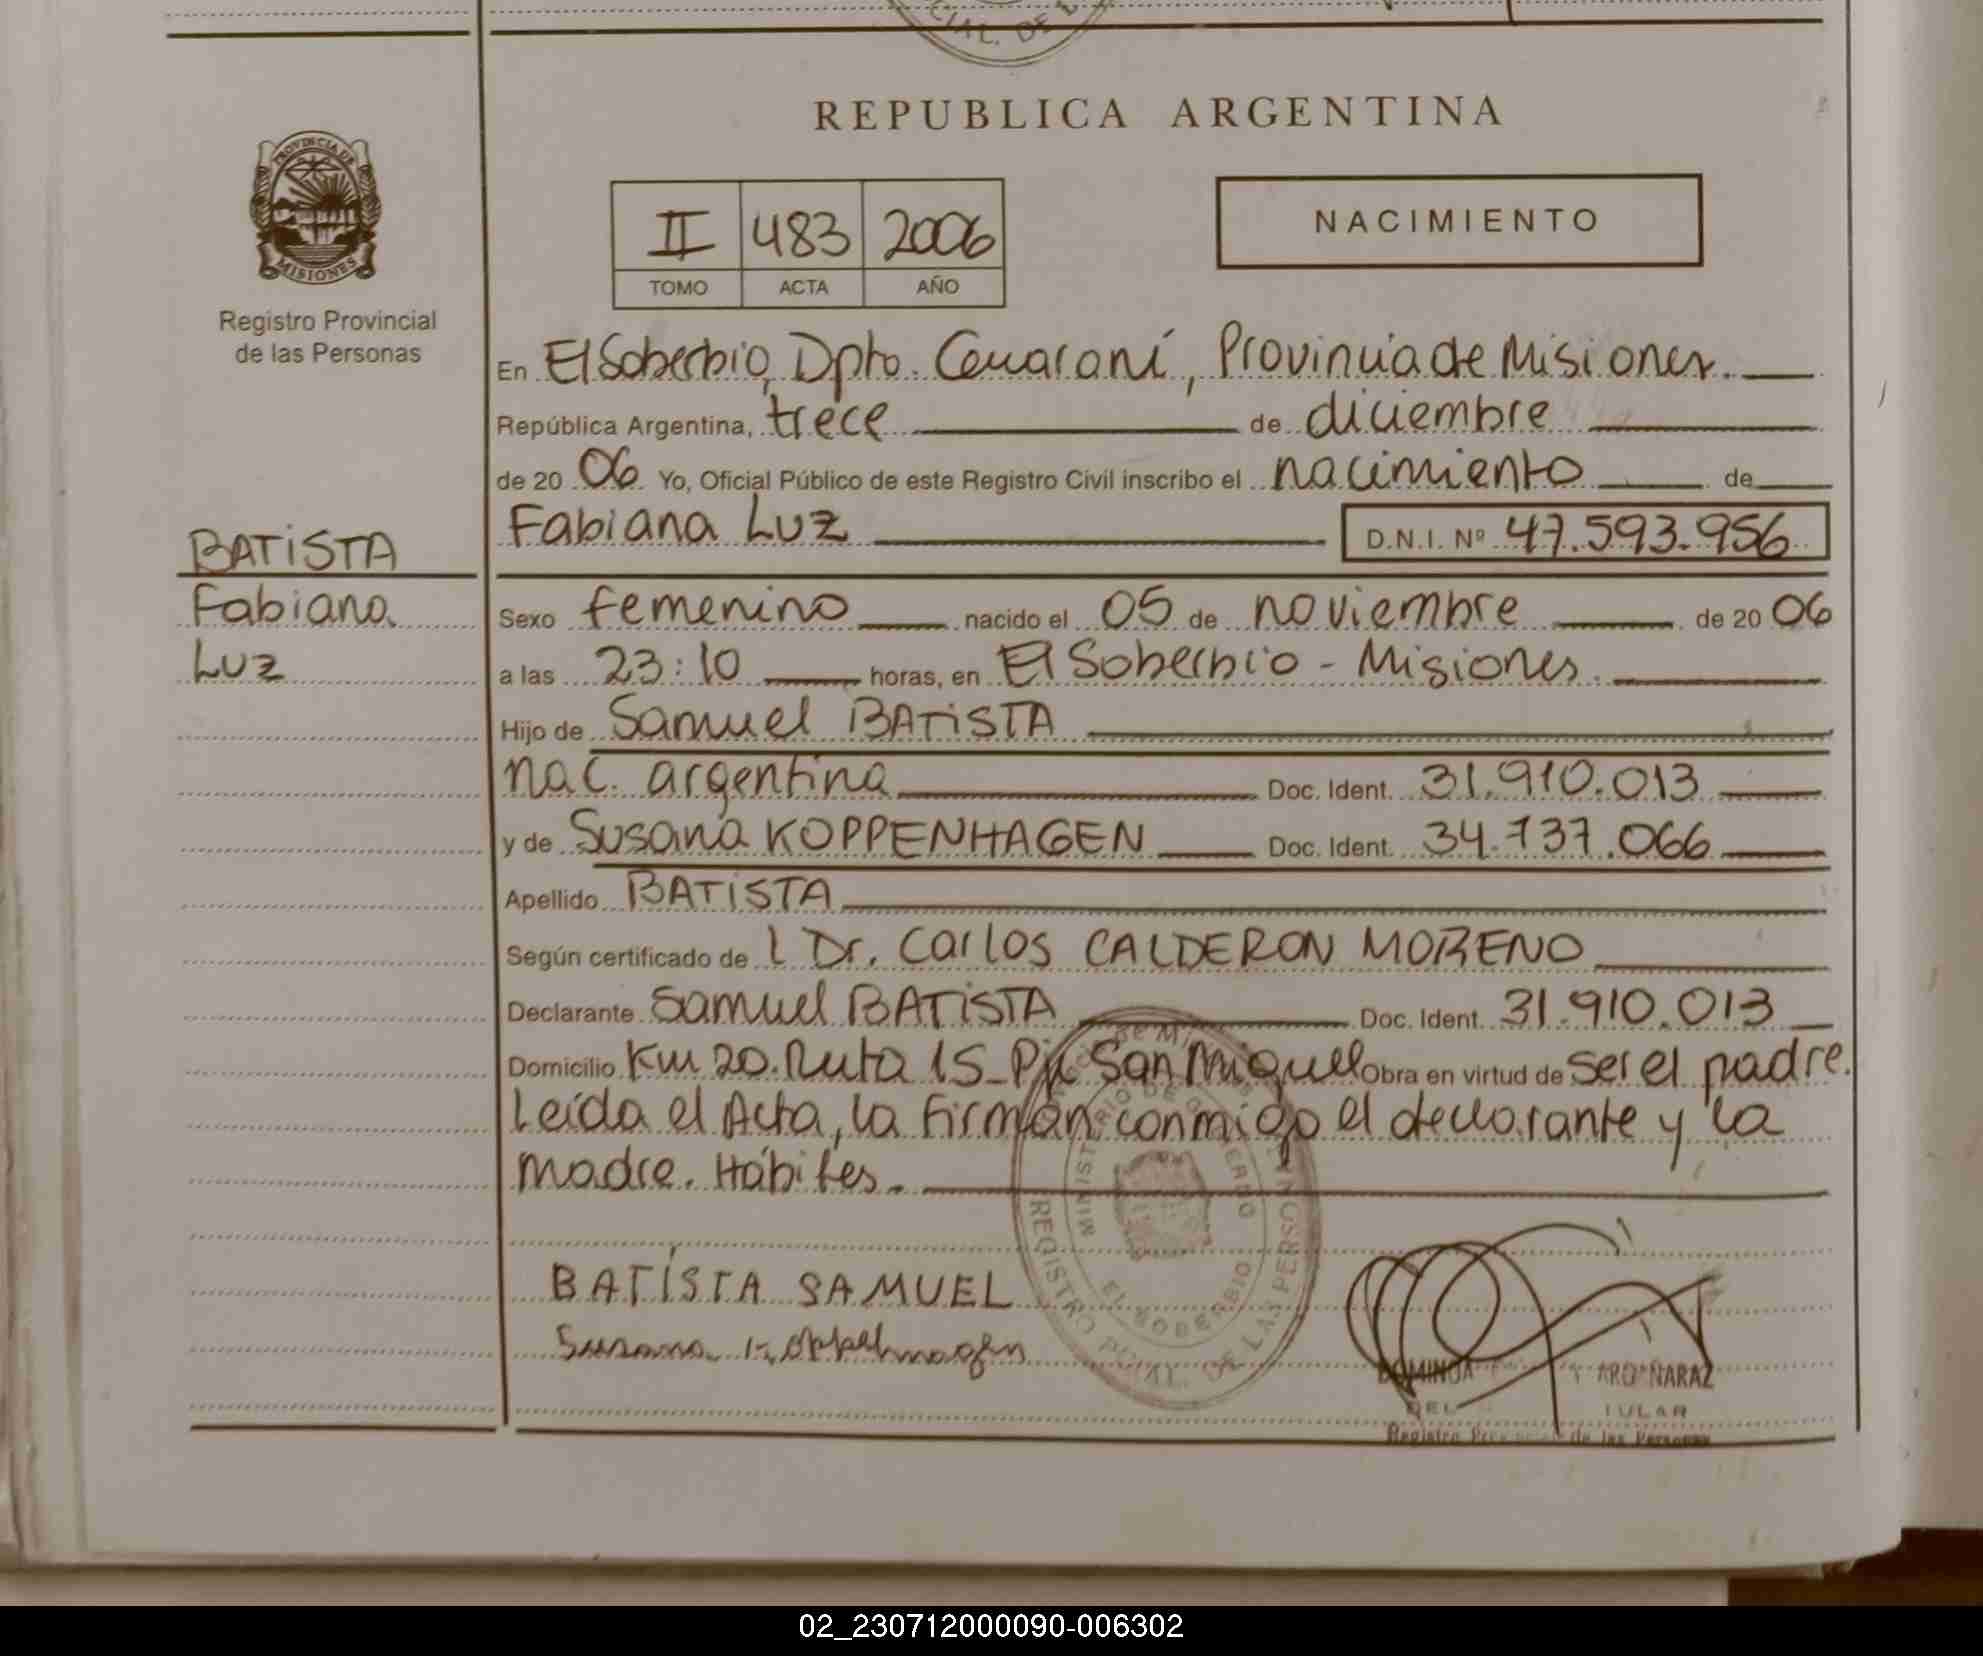 CIAL. DE L
REPUBLICA ARGENTINA
PROVINCIA DE
MISIONES
Registro Provincial
de las Personas
II 483 2006
TOMO ACTA AÑO
NACIMIENTO
En El Soberbio, Dpto. Guaraní, Provincia de Misiones.
República Argentina, trece de diciembre
de 20 06 Yo, Oficial Público de este Registro Civil inscribo el nacimiento de
Fabiana Luz D.N.I. Nº 47.593.956
BATISTA
Fabiana
Luz
Sexo femenino nacido el 05 de noviembre de 20 06
a las 23:10 horas, en El Soberbio - Misiones.
Hijo de Samuel BATISTA
nac. argentina Doc. Ident. 31.910.013
y de Susana KOPPENHAGEN Doc. Ident. 34.737.066
Apellido BATISTA
Según certificado de l Dr. Carlos CALDERON MORENO
Declarante Samuel BATISTA Doc. Ident. 31.910.013
Domicilio Km 20. Ruta 15 - Pje San Miguel Obra en virtud de ser el padre.
Leída el Acta, la firman conmigo el declarante y la
madre. Hábiles.
MINISTERIO DE GOBIERNO
EL SOBERBIO
REGISTRO PCIAL. DE LAS PERSONAS
BATÍSTA SAMUEL
Susana
DOMINGA ARGAÑARAZ
DEL
Registro de las Personas
02_230712000090-006302